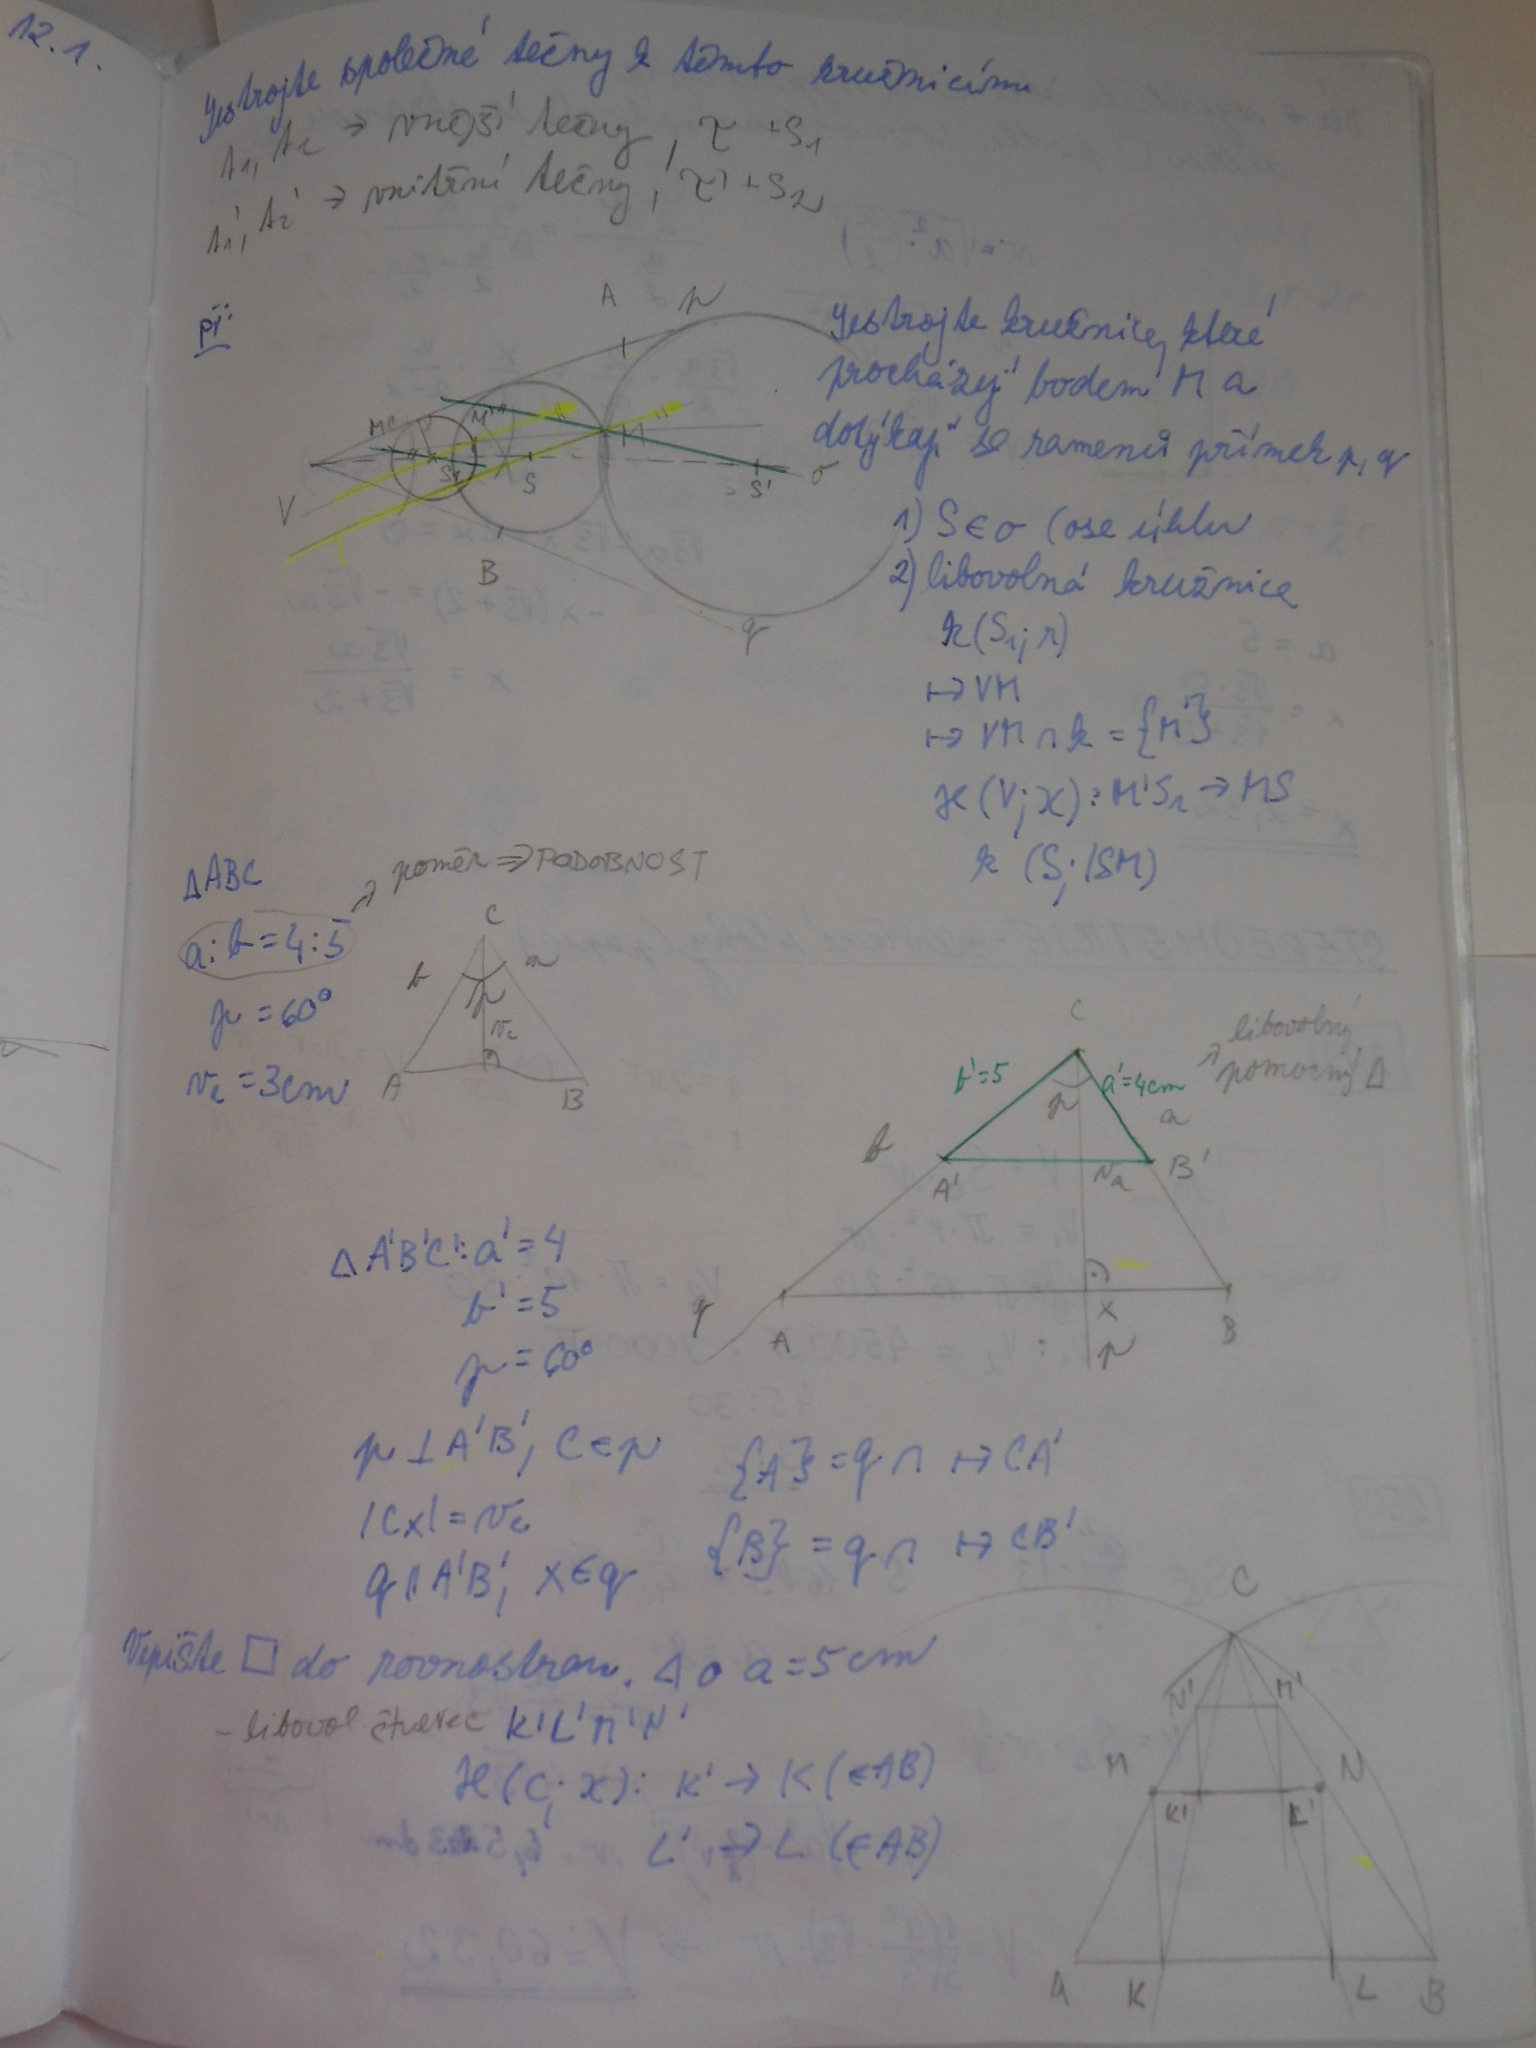 12.1.
Sestrojte společné tečny k těmto kružnicím
t1, t2 → vnější tečny, τ → S1
t1', t2' → vnitřní tečny, τ' → S2
př:
A p
M'' M''' M
V S1 S S' σ
B
q
Sestrojte kružnice, které
procházejí bodem M a
dotýkají se ramenů přímek p, q
1) S ∈ σ (ose úhlu
2) libovolná kružnice
k (S1; r)
↦ VM
↦ VM ∩ k = {M'}
H (V; χ): M'S1 → MS
k (S; |SM|)
ΔABC
→ poměr ⇒ PODOBNOST
a:b = 4:5
γ = 60°
vc = 3cm
C
b a
γ
vc
A B
C
b'=5 a'=4cm
→ libovolný
pomocný Δ
γ
b a
A' va B'
q A x B
p
Δ A'B'C': a' = 4
b' = 5
γ = 60°
p ⊥ A'B', C ∈ p
{A} = q ∩ ↦ CA'
|CX| = vc
{B} = q ∩ ↦ CB'
q ∥ A'B', X ∈ q
Vepište □ do rovnostran. Δ o a = 5cm
- libovol čtverec K'L'M'N'
H (C; χ): K' → K (∈AB)
L' → L (∈AB)
C
N' M'
M N
K' L'
A K L B